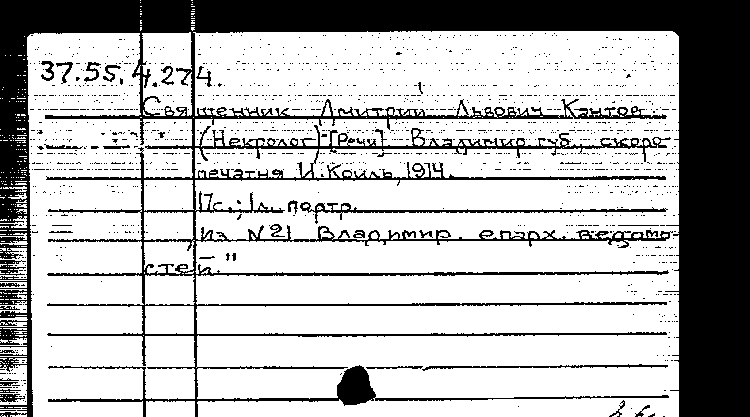 37.55.4.274.
Священник Дмитрий Львович Кантов
(Некролог) [Речи]. Владимир губ., скоро-
печатня И. Коиль, 1914.
17с.; 1л. портр.
„Из №21 Владимир. епарх. ведомо-
стей."